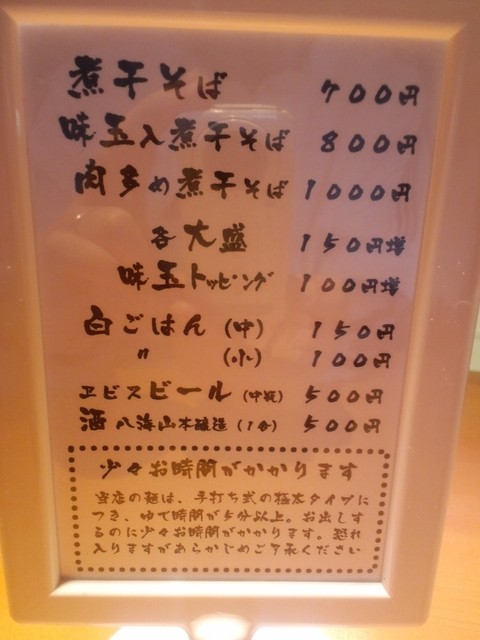 煮干そば 700円
味玉入煮干そば 800円
肉多め煮干そば 1000円
各大盛 150円増
味玉トッピング 100円増
白ごはん(中) 150円
〃 (小) 100円
ヱビスビール(中瓶) 500円
酒 八海山本醸造(1合) 500円
少々お時間がかかります
当店の麺は、手打ち式の極太タイプに
つき、ゆで時間が5分以上。お出しす
るのに少々お時間がかかります。恐れ
入りますがあらかじめご了承ください